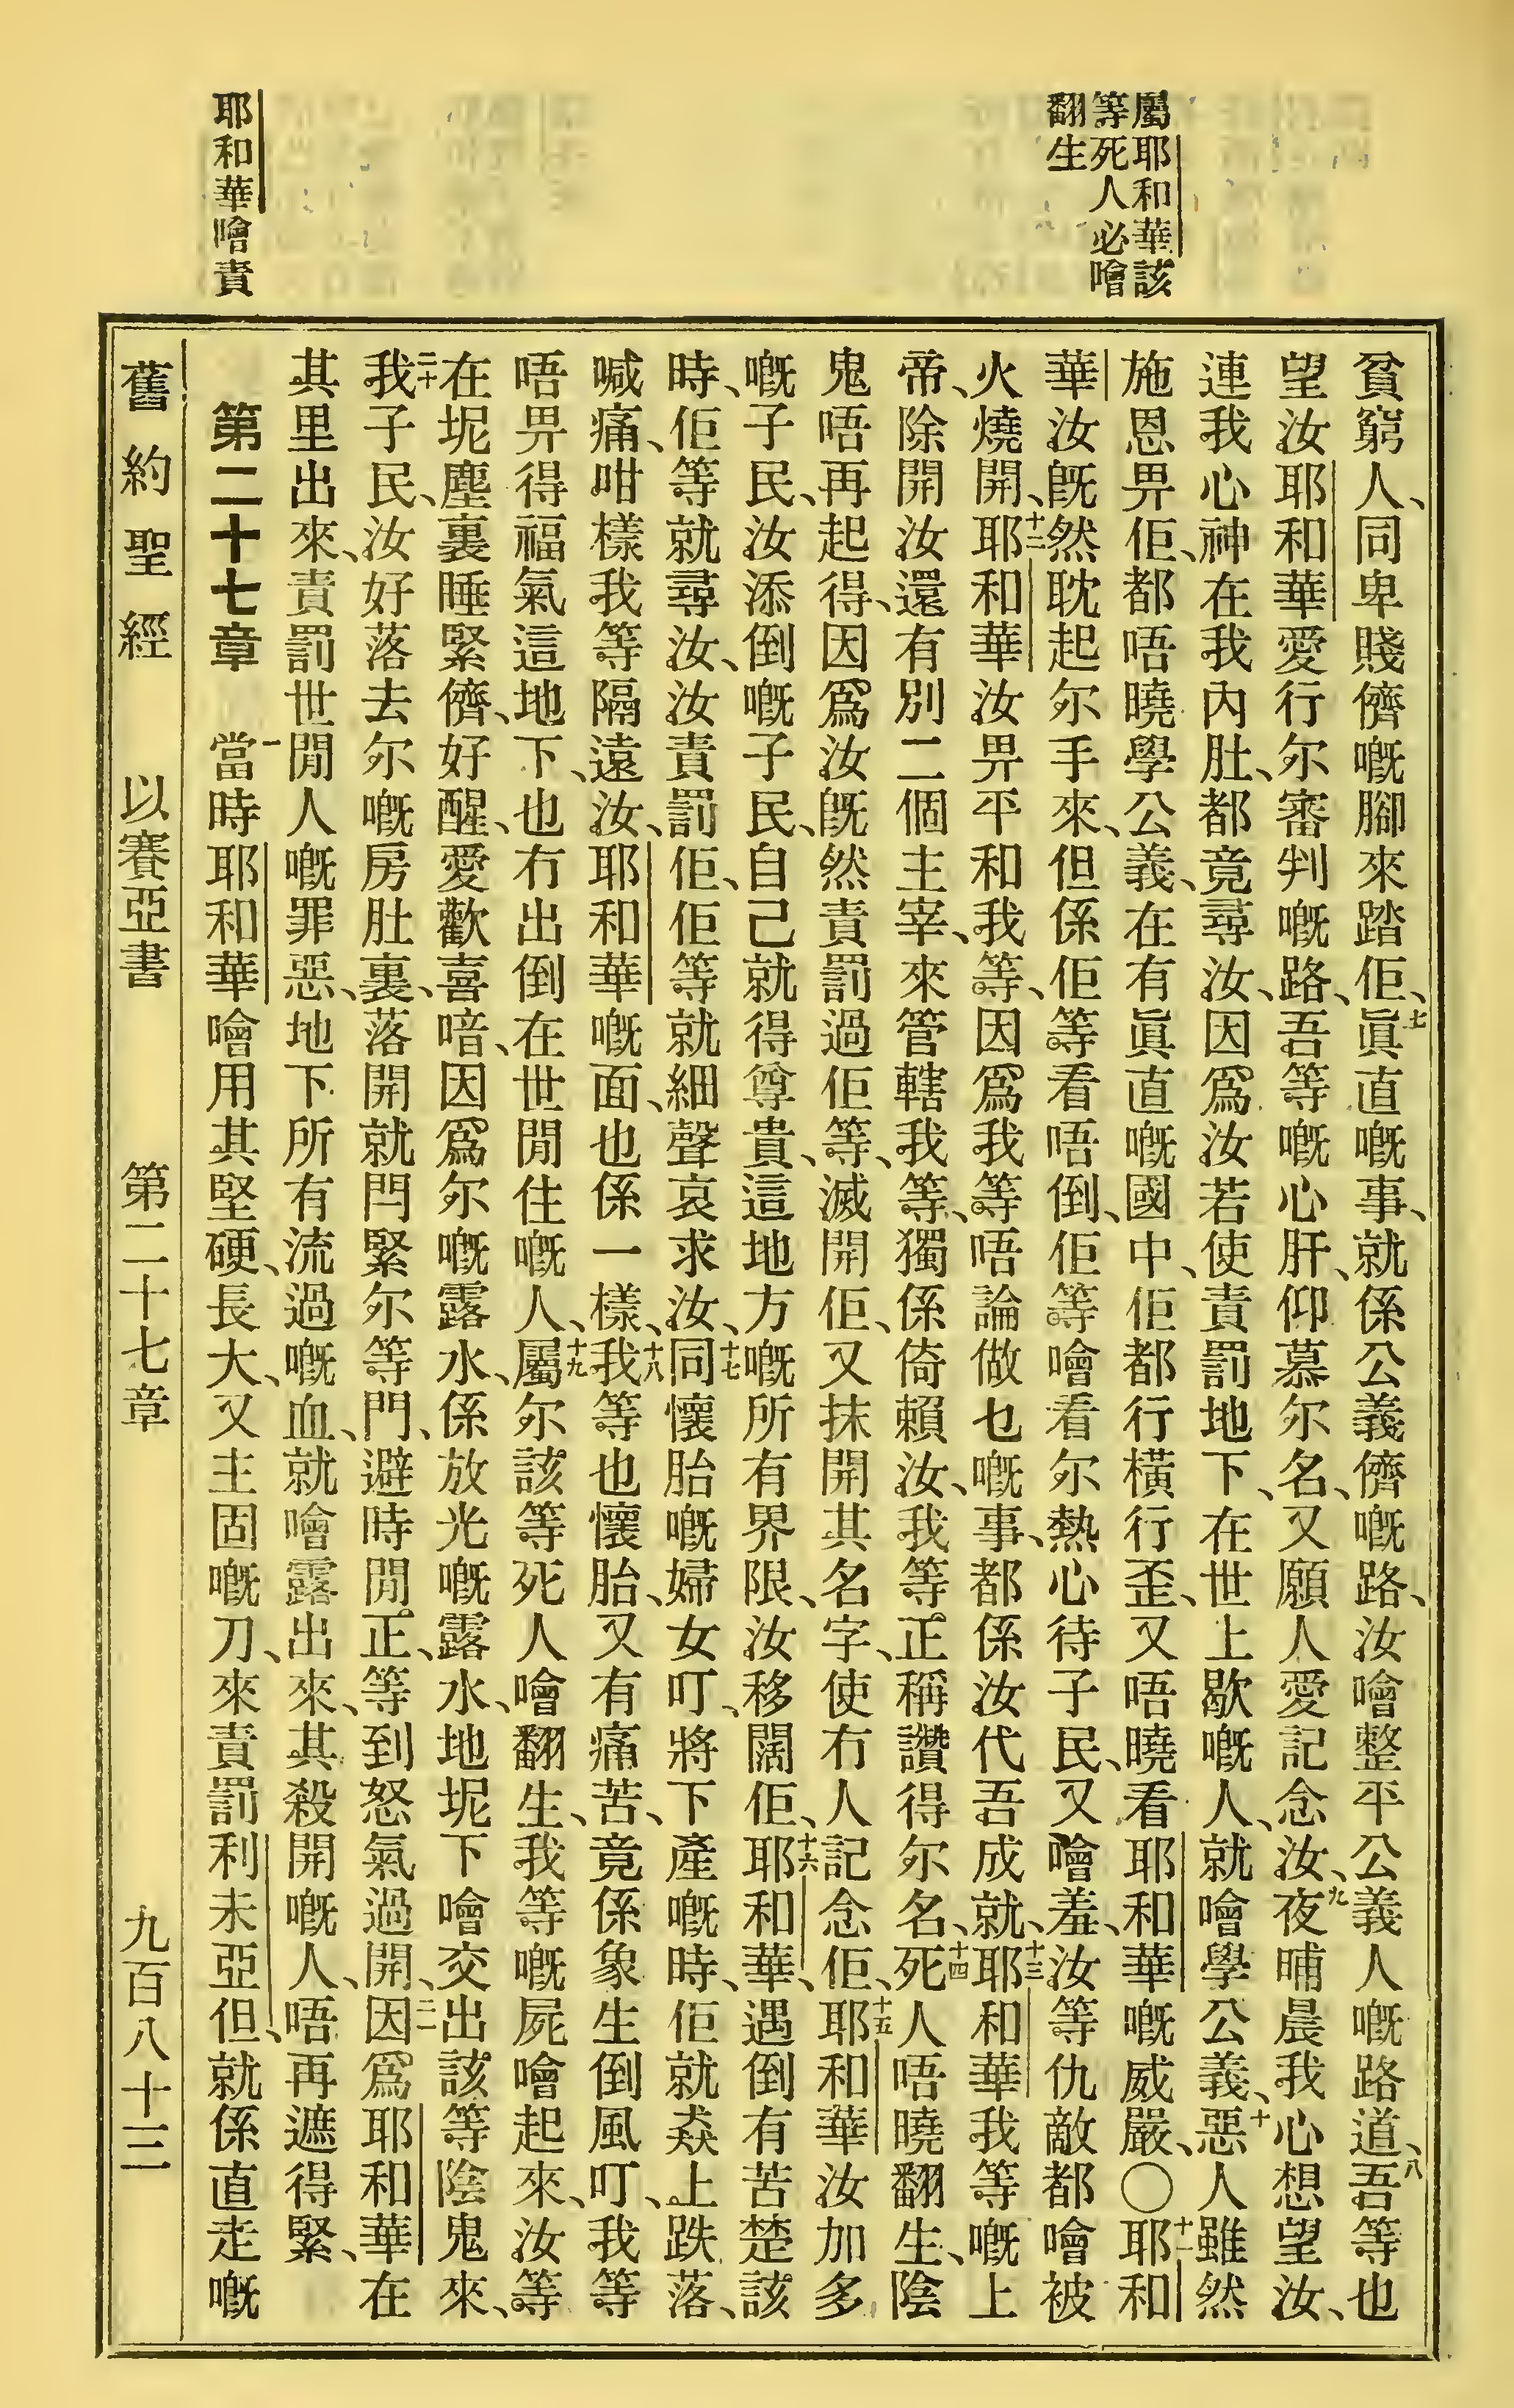 屬耶和華該
等死人必噲
翻生
耶和華噲責
貧窮人、同卑賤儕嘅腳來踏佢、七眞直嘅事、就係公義儕嘅路、汝噲整平公義人嘅路道、八吾等也
望汝耶和華愛行尔審判嘅路、吾等嘅心肝、仰慕尔名、又願人愛記念汝、九夜晡晨我心想望汝、
連我心神在我內肚、都竟尋汝、因爲汝若使責罰地下、在世上歇嘅人、就噲學公義、十惡人雖然
施恩畀佢、都唔曉學公義、在有眞直嘅國中、佢都行橫行歪、又唔曉看耶和華嘅威嚴、〇十一耶和
華汝旣然耽起尔手來、但係佢等看唔倒、佢等噲看尔熱心待子民、又噲羞、汝等仇敵都噲被
火燒開、十二耶和華汝畀平和我等、因爲我等唔論做乜嘅事、都係汝代吾成就、十三耶和華我等嘅上
帝、除開汝還有別二個主宰、來管轄我等、獨係倚賴汝、我等正稱讚得尔名、十四死人唔曉翻生、陰
鬼唔再起得、因爲汝旣然責罰過佢等、滅開佢、又抹開其名字、使冇人記念佢、十五耶和華汝加多
嘅子民、汝添倒嘅子民、自己就得尊貴、這地方嘅所有界限、汝移闊佢、十六耶和華、遇倒有苦楚該
時、佢等就尋汝、汝責罰佢、佢等就細聲哀求汝、十七同懷胎嘅婦女叮、將下產嘅時、佢就猋上跌落、
喊痛、咁樣我等隔遠汝、耶和華嘅面、也係一樣、十八我等也懷胎、又有痛苦、竟係象生倒風叮、我等
唔畀得福氣這地下、也冇出倒在世閒住嘅人、十九屬尔該等死人噲翻生、我等嘅屍噲起來、汝等
在坭塵裏睡緊儕、好醒、愛歡喜喑、因爲尔嘅露水、係放光嘅露水、地坭下噲交出該等陰鬼來、
二十我子民、汝好落去尔嘅房肚裏、落開就閂緊尔等門、避時閒正、等到怒氣過開、二一因爲耶和華在
其里出來、責罰世閒人嘅罪惡、地下所有流過嘅血、就噲露出來、其殺開嘅人、唔再遮得緊、
第二十七章　一當時耶和華噲用其堅硬、長大、又主固嘅刀、來責罰利未亞但、就係直走嘅
舊約聖經　以賽亞書　第二十七章　九百八十三